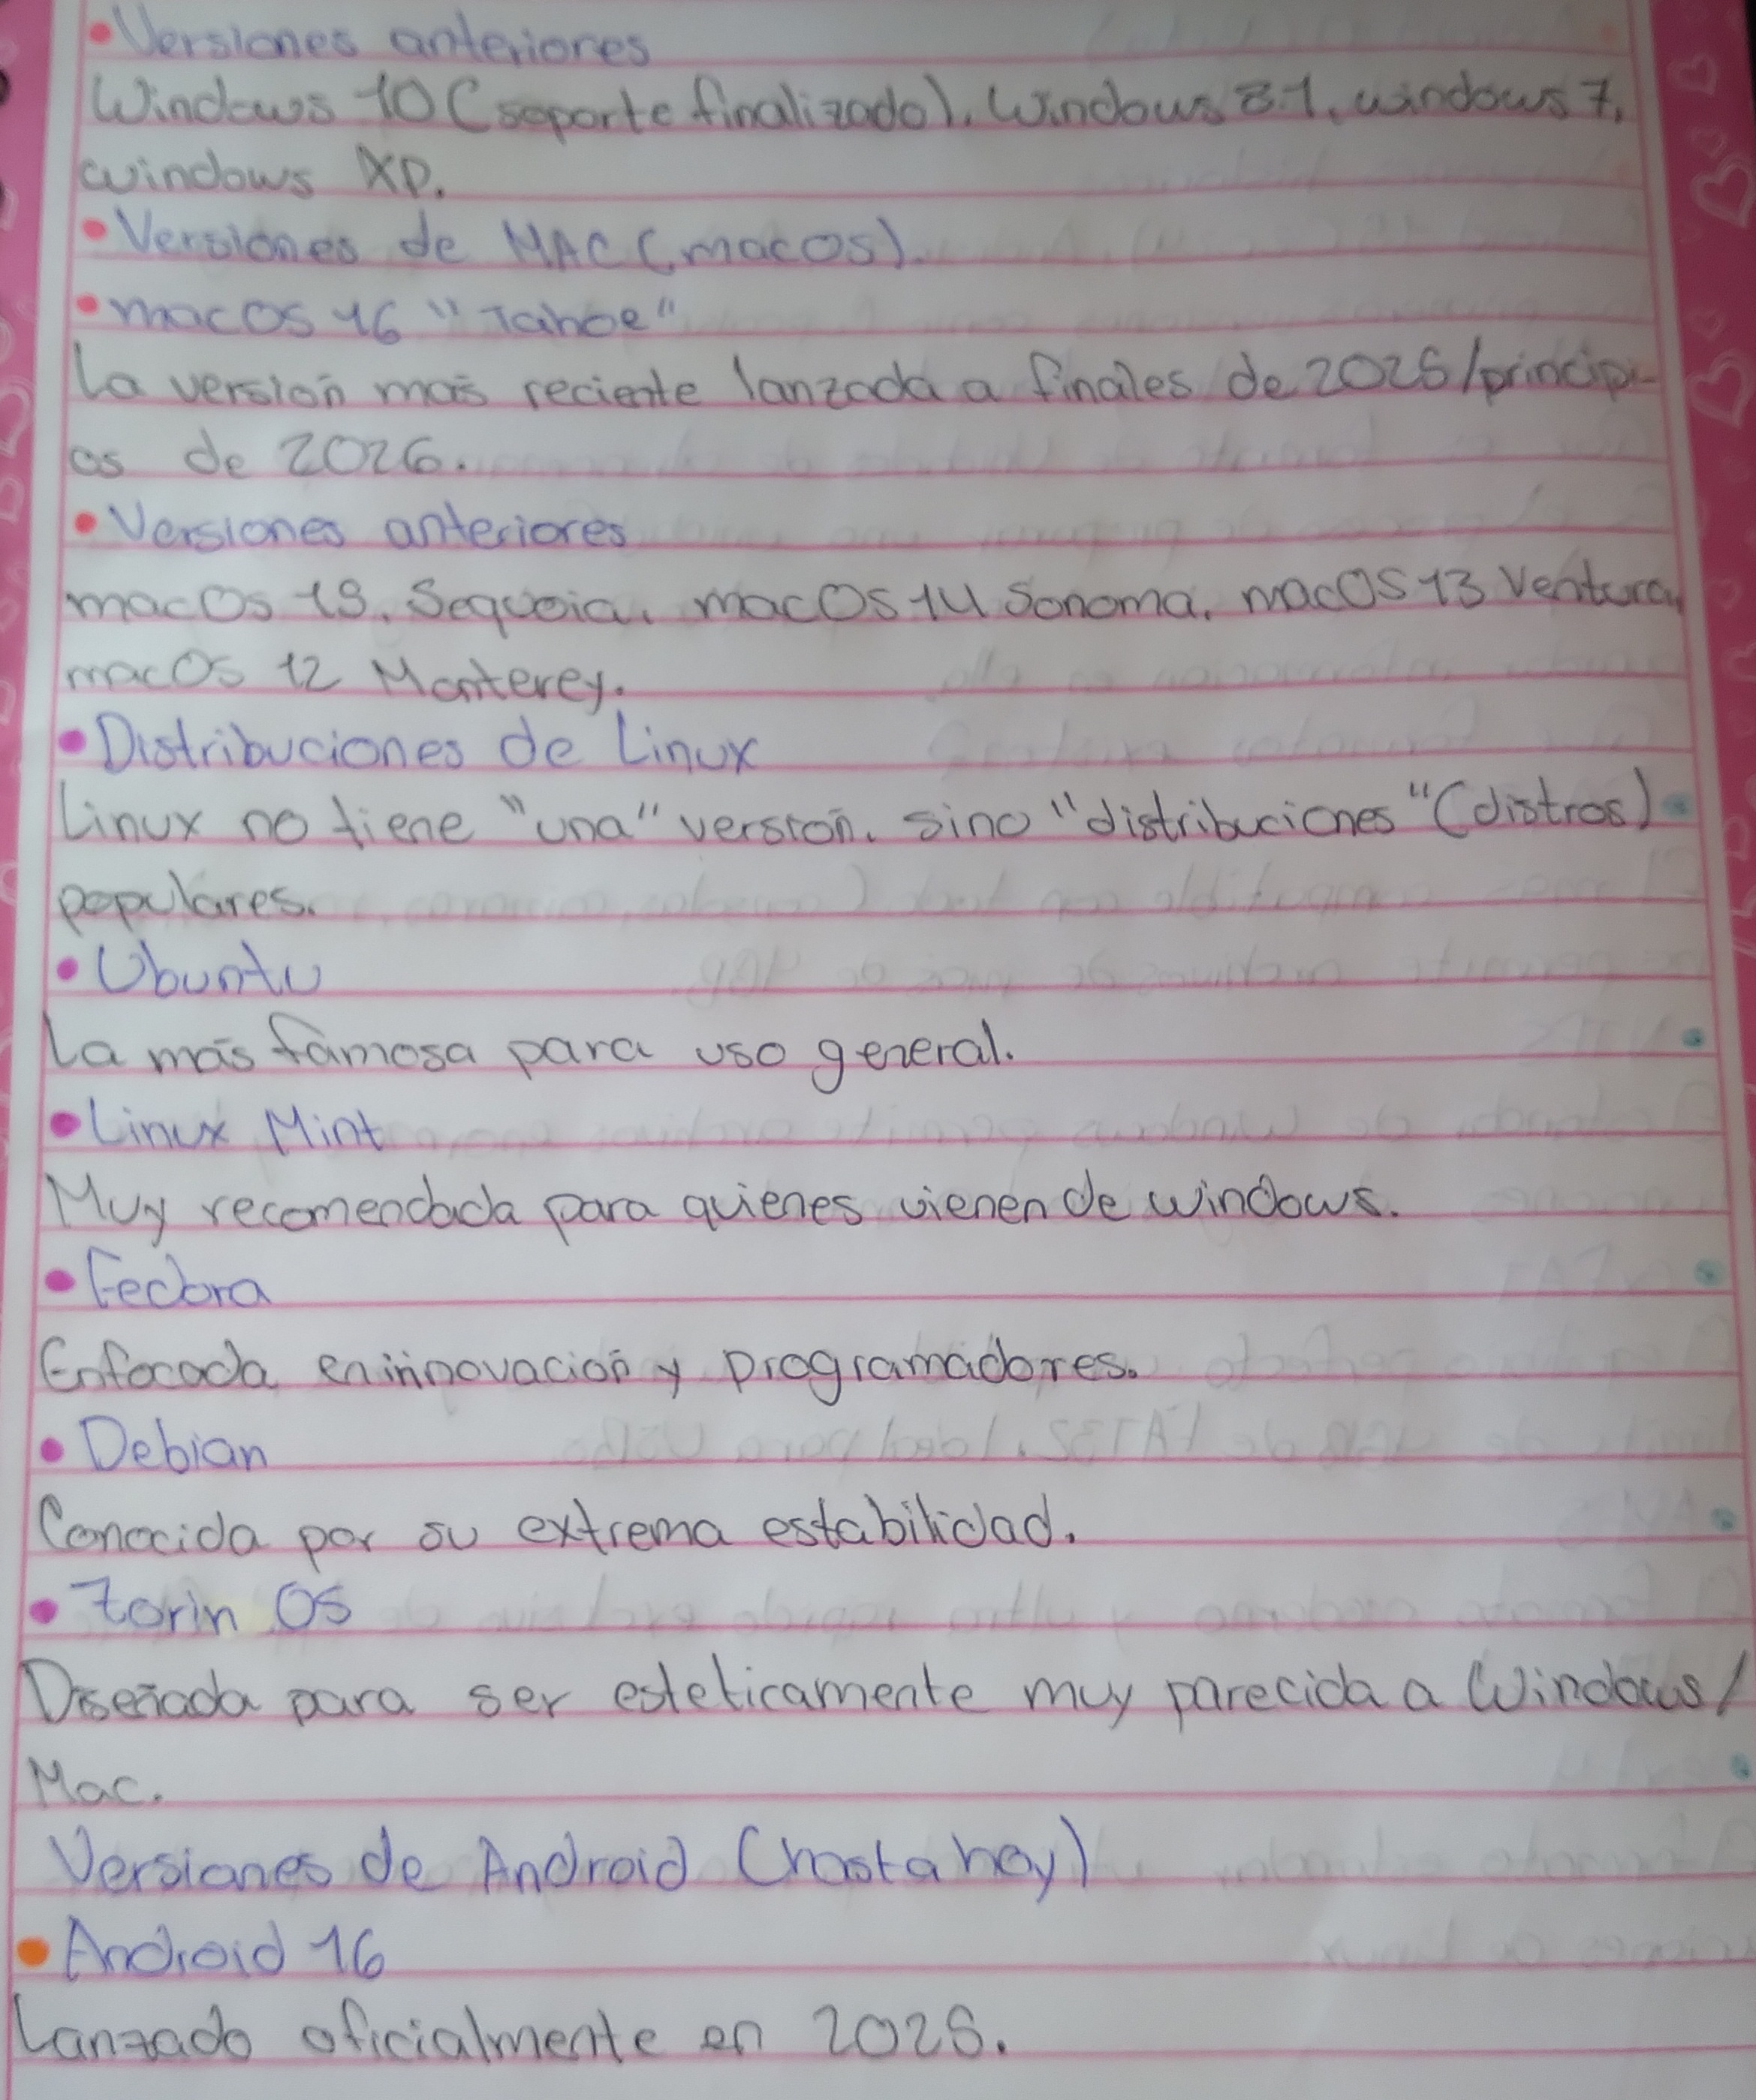 • Versiones anteriores
Windows 10 (soporte finalizado), Windows 8.1, windows 7,
windows XP.
• Versiones de MAC (macOS).
• macOS 16 "Tahoe"
La versión más reciente lanzada a finales de 2025/principi-
os de 2026.
• Versiones anteriores
macOs 15, Sequoia, macOS 14 Sonoma, macOS 13 Ventura,
macOs 12 Monterey.
• Distribuciones de Linux
Linux no tiene "una" versión, sino "distribuciones" (distros)
populares.
• Ubuntu
La más famosa para uso general.
• Linux Mint
Muy recomendada para quienes vienen de windows.
• Fedora
Enfocada en innovación y programadores.
• Debian
Conocida por su extrema estabilidad.
• Zorin OS
Diseñada para ser esteticamente muy parecida a Windows/
Mac.
Versiones de Android (hasta hoy)
• Android 16
Lanzado oficialmente en 2025.